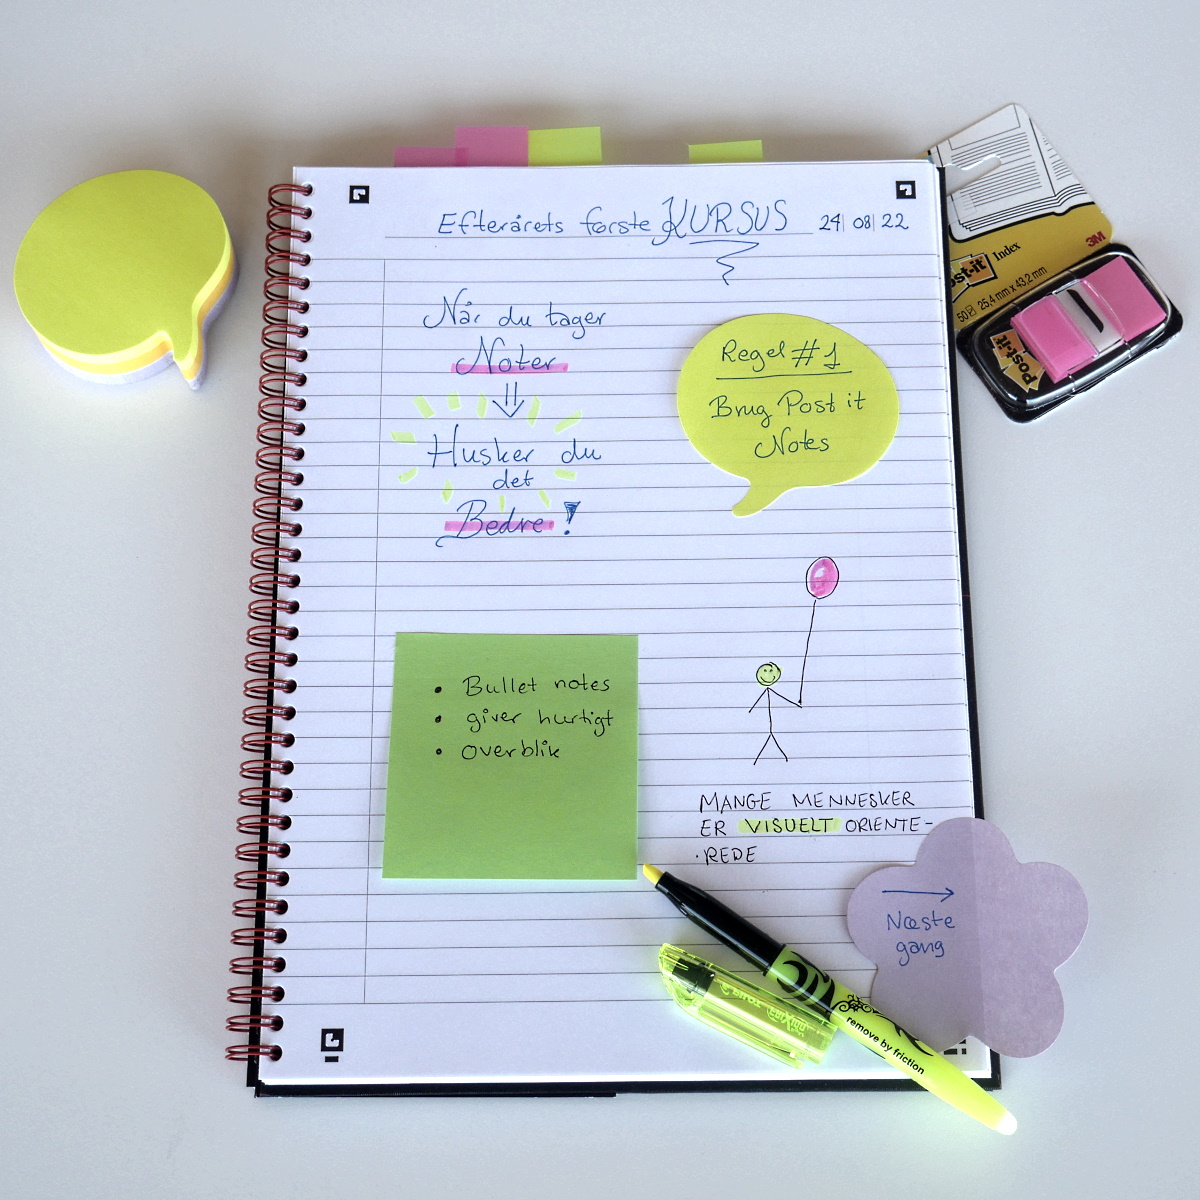 Efterårets første KURSUS 24|08|22
Når du tager
Noter
Husker du
det
Bedre!
Regel #1
Brug Post it
Notes
• Bullet notes
• giver hurtigt
• overblik
MANGE MENNESKER
ER VISUELT ORIENTE-
-REDE
Næste
gang
Post-it Index
3M
50 25,4 mm x 43,2 mm
Post-it
PILOT FriXion
remove by friction